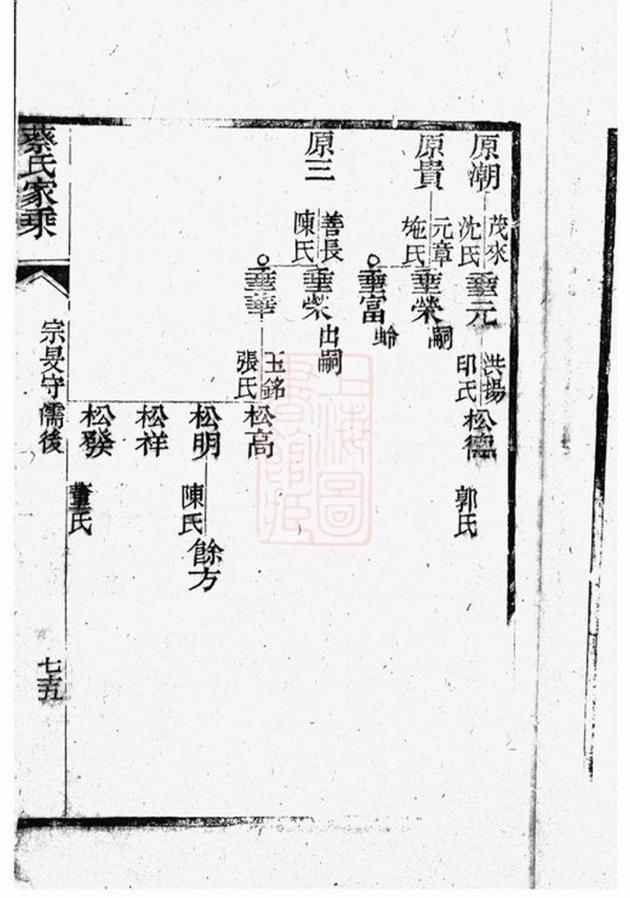 原潮
茂來
沈氏
垂元
洪揚
印氏
松德
郭氏
原貴
元章
施氏
垂榮
嗣
垂富
蛉
原三
善長
陳氏
垂榮
出嗣
垂華
玉銘
張氏
松高
松明
陳氏
餘方
松祥
松發
董氏
蔡氏家乘
宗旻守儒後
七十五
上海圖
書館藏